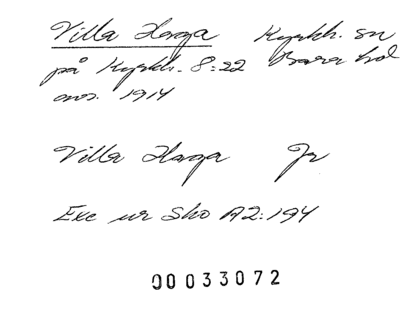 Villa Haga Kyrkh. sn
på Kyrkh. 8:22 Bara hd
avs. 1914
Villa Haga Jr
Exc ur Sko A2:194
00033072